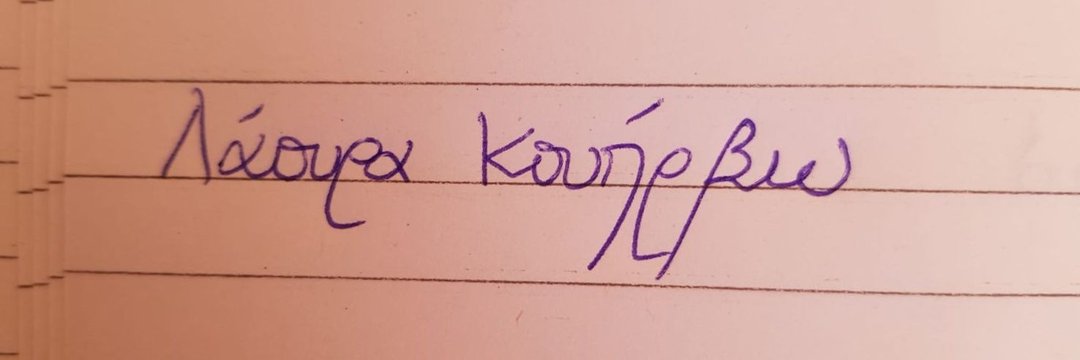 Λάουρα Κουήρβιω